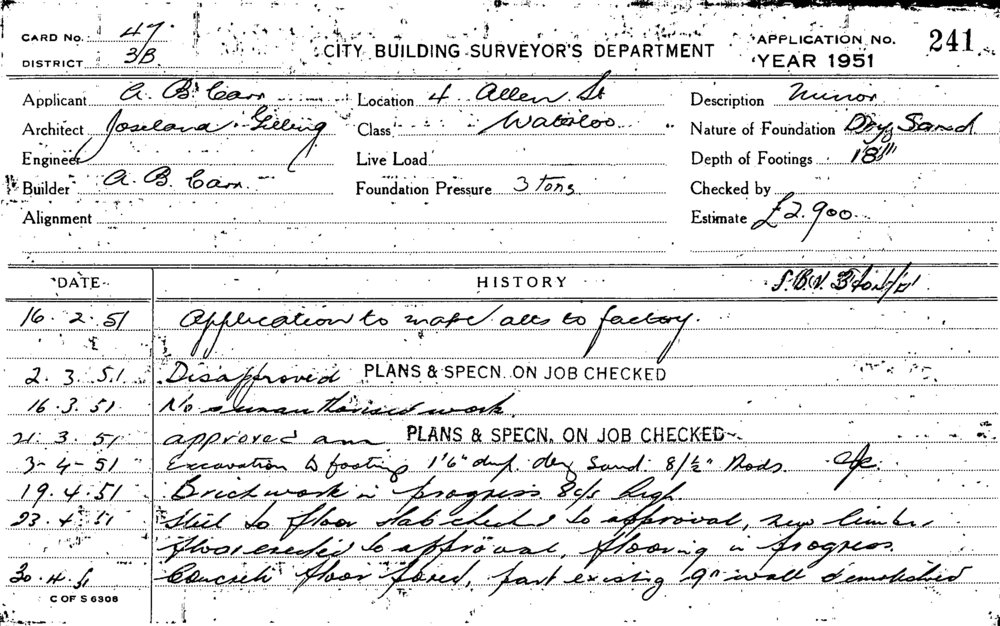 CARD No. 47
DISTRICT 3/B
CITY BUILDING SURVEYOR'S DEPARTMENT
APPLICATION No. 241
YEAR 1951
Applicant A. B. Carr
Location 4 Allen St
Description Minor
Architect
Class Waterloo
Nature of Foundation Dry Sand
Engineer
Live Load
Depth of Footings 18"
Builder A. B. Carr
Foundation Pressure 3 tons
Checked by
Alignment
Estimate £2,900
DATE
HISTORY
16.2.51 Application to make alts to factory.
2.3.51 Disapproved PLANS & SPECN. ON JOB CHECKED
16.3.51 No unauthorised work.
21.3.51 approved PLANS & SPECN. ON JOB CHECKED
3-4-51 Excavation to footings 1'6" deep. dry Sand. 8/½" Rods.
19.4.51 Brickwork in progress 8c/s high
23.4.51 Steel to floor slab checked to approval, new timber
floor erected to approval, flooring in progress.
30.4.51 Concrete floor poured, part existing 9" wall demolished
C OF S 6308